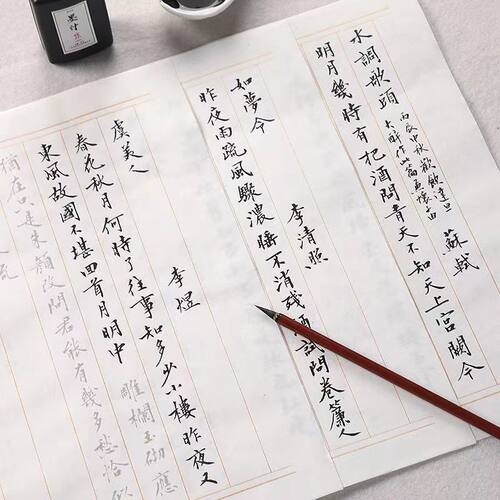 水調歌頭
丙辰中秋歡飲達旦
大醉作此篇兼懷子由
蘇軾
明月幾時有把酒問青天不知天上宮闕今
如夢令
李清照
昨夜雨疏風驟濃睡不消殘酒試問卷簾人
虞美人
李煜
春花秋月何時了往事知多少小樓昨夜又
東風故國不堪回首月明中雕欄玉砌應
猶在只是朱顏改問君能有幾多愁恰似
流
墨汁